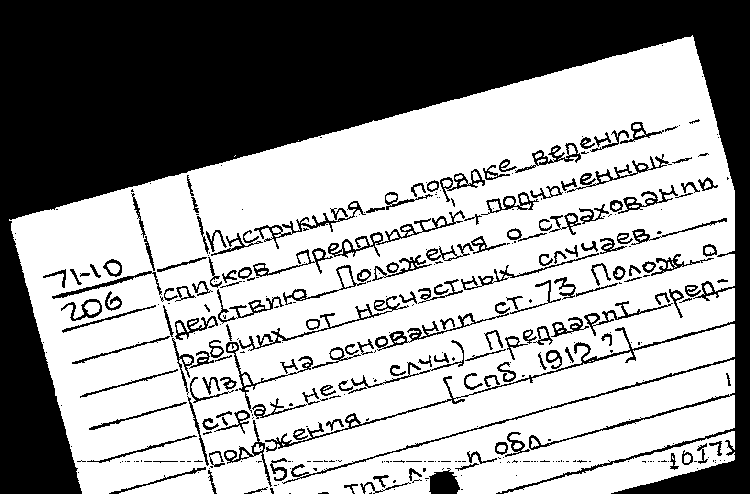 71-10
206
Инструкция о порядке ведения
списков предприятий, подчиненных
действию Положения о страховании
рабочих от несчастных случаев.
(Изд. на основании ст. 73 Полож. о
страх. несч. случ.) Предварит. пред-
положения. [Спб., 1912?].
5с.
тит. л. и обл.